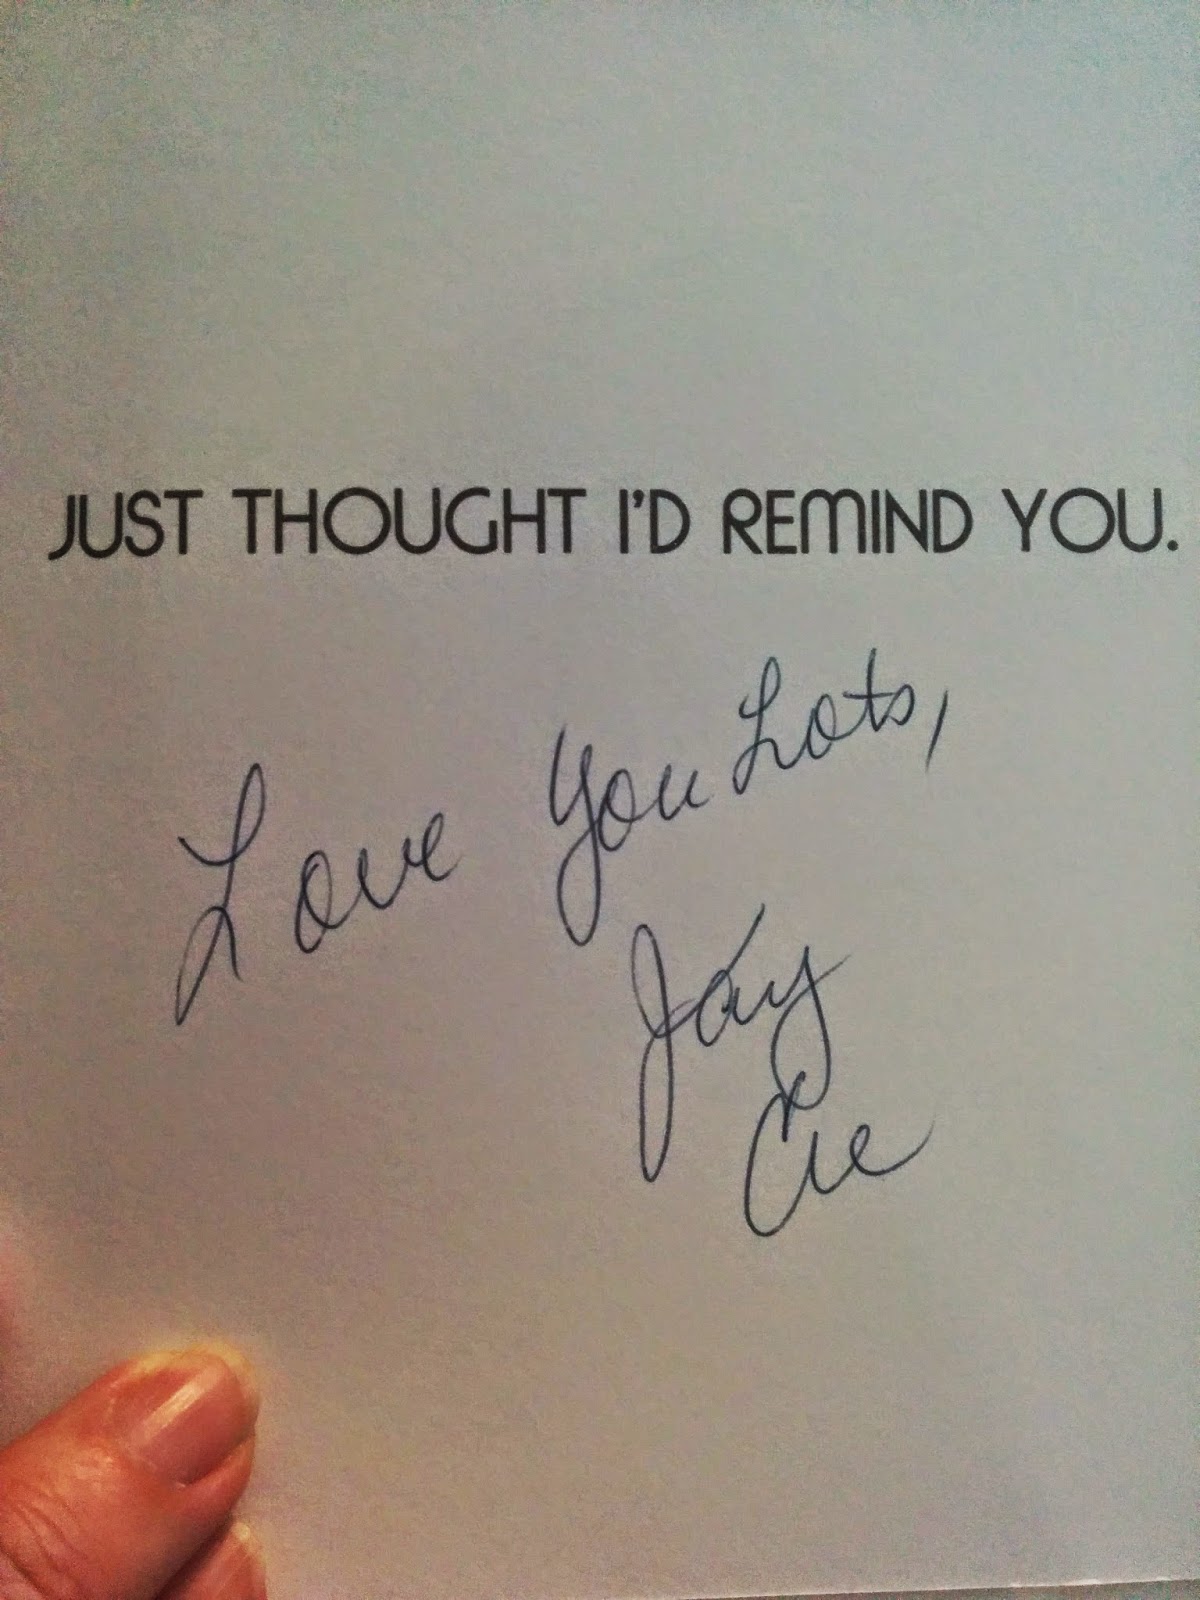 JUST THOUGHT I'D REMIND YOU.
Love You Lots,
Jay
Cie